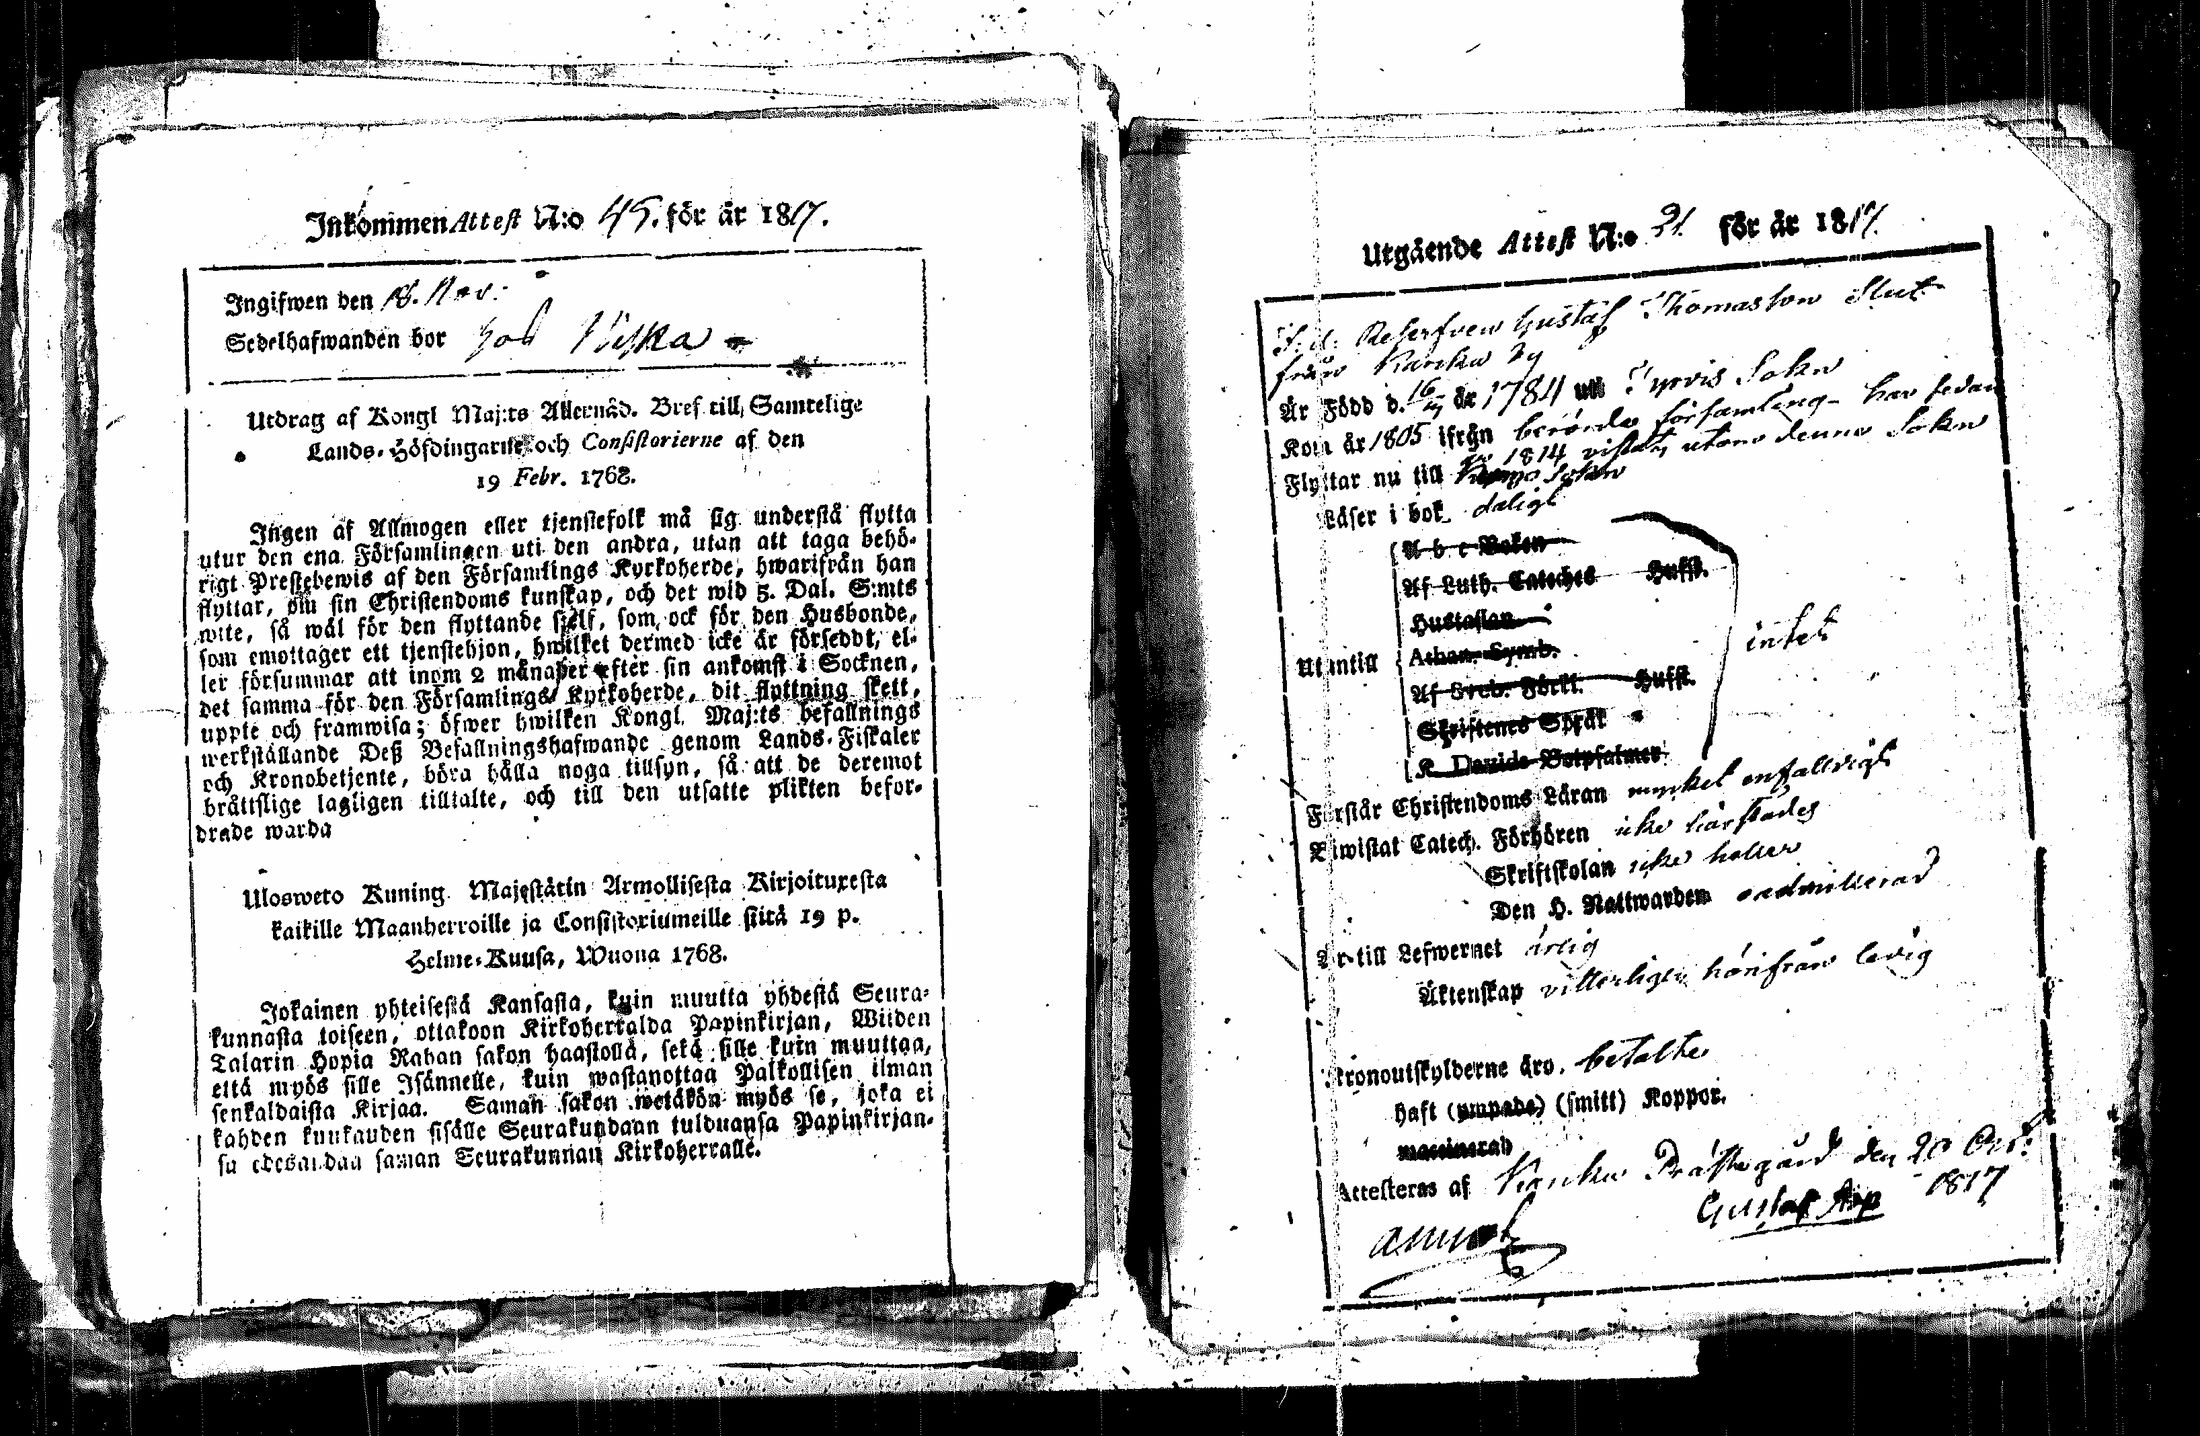 Inkommen Attest N:o 45. för år 1817.
Ingifwen den 18. Nov:
Sedelhafwanden bor hos
Utdrag af Kongl Maj:ts Allernåd. Bref till Samtelige
Lands-Höfdingarne och Consistorierne af den
19 Febr. 1768.
Ingen af Allmogen eller tjenstefolk må sig understå flytta
utur den ena Församlingen uti den andra, utan att taga behö-
rigt Prestebewis af den Församlings Kyrkoherde, hwarifrån han
flyttar, om sin Christendoms kunskap, och det wid 5. Dal. S:mts
wite, så wäl för den flyttande sjelf, som ock för den Husbonde,
som emottager ett tjenstehjon, hwilket dermed icke är försedt, el-
ler försummar att inom 2 månader efter sin ankomst i Socknen,
det samma för den Församlings Kyrkoherde, dit flyttning skett,
uppte och framwisa; öfwer hwilken Kongl. Maj:ts befallnings
werkställande Deß Befallningshafwande genom Lands-Fiskaler
och Kronobetjente, böra hålla noga tillsyn, så att de deremot
bråttslige lagligen tilltalte, och till den utsatte plikten befor-
drade warda
Ulosweto Kuning. Majestätin Armollisesta Kirjoituxesta
kaikille Maanherroille ja Consistoriumeille siitä 19 p.
Helme-Kuusa, Wuona 1768.
Jokainen yhteisestä Kansasta, kuin muutta yhdestä Seura-
kunnasta toiseen, ottakoon Kirkoherralda Papinkirjan, Wiiden
Talarin Hopia Rahan sakon haastolla, sekä sille kuin muuttaa,
että myös sille Isännelle, kuin wastanottaa Palkollisen ilman
senkaldaista Kirjaa. Saman sakon wetäkön myös se, joka ei
kahden kuukauden sisälle Seurakundaan tulduansa Papinkirjan-
sa edesandaa saman Seurakunnan Kirkoherralle.
Utgående Attest N:o 21 för år 1817.
Reserfven Gustaf Thomasson
från Karku By
Är Född d. 16 år 1784 uti Tyrvis Sokn
Kom år 1805 ifrån berörde församling - har sedan
1814 vistats utom denne Sokn
Flyttar nu till Sokn
Läser i bok dåligt
Utantill
A b c Boken
Af Luth. Cateches Hufst.
Hustaflan
Athan. Symb.
Af Sveb. Förkl. Hufst.
Skriftenes Språk
K. Davids Botpsalmer
intet
Förstår Christendoms Läran mycket enfalldigt
Biwistat Catech. Förhören icke härstädes
Skriftskolan icke heller
Den H. Nattwarden oadmitterad
Är till Lefwernet ärlig
Äktenskap vitterligen härifrån ledig
Kronoutskylderne äro betalte
haft (ympade) (smitt) Koppor.
waccinerad
Attesteras af Karku Prästegård den 20 Oct:
1817
Gustaf